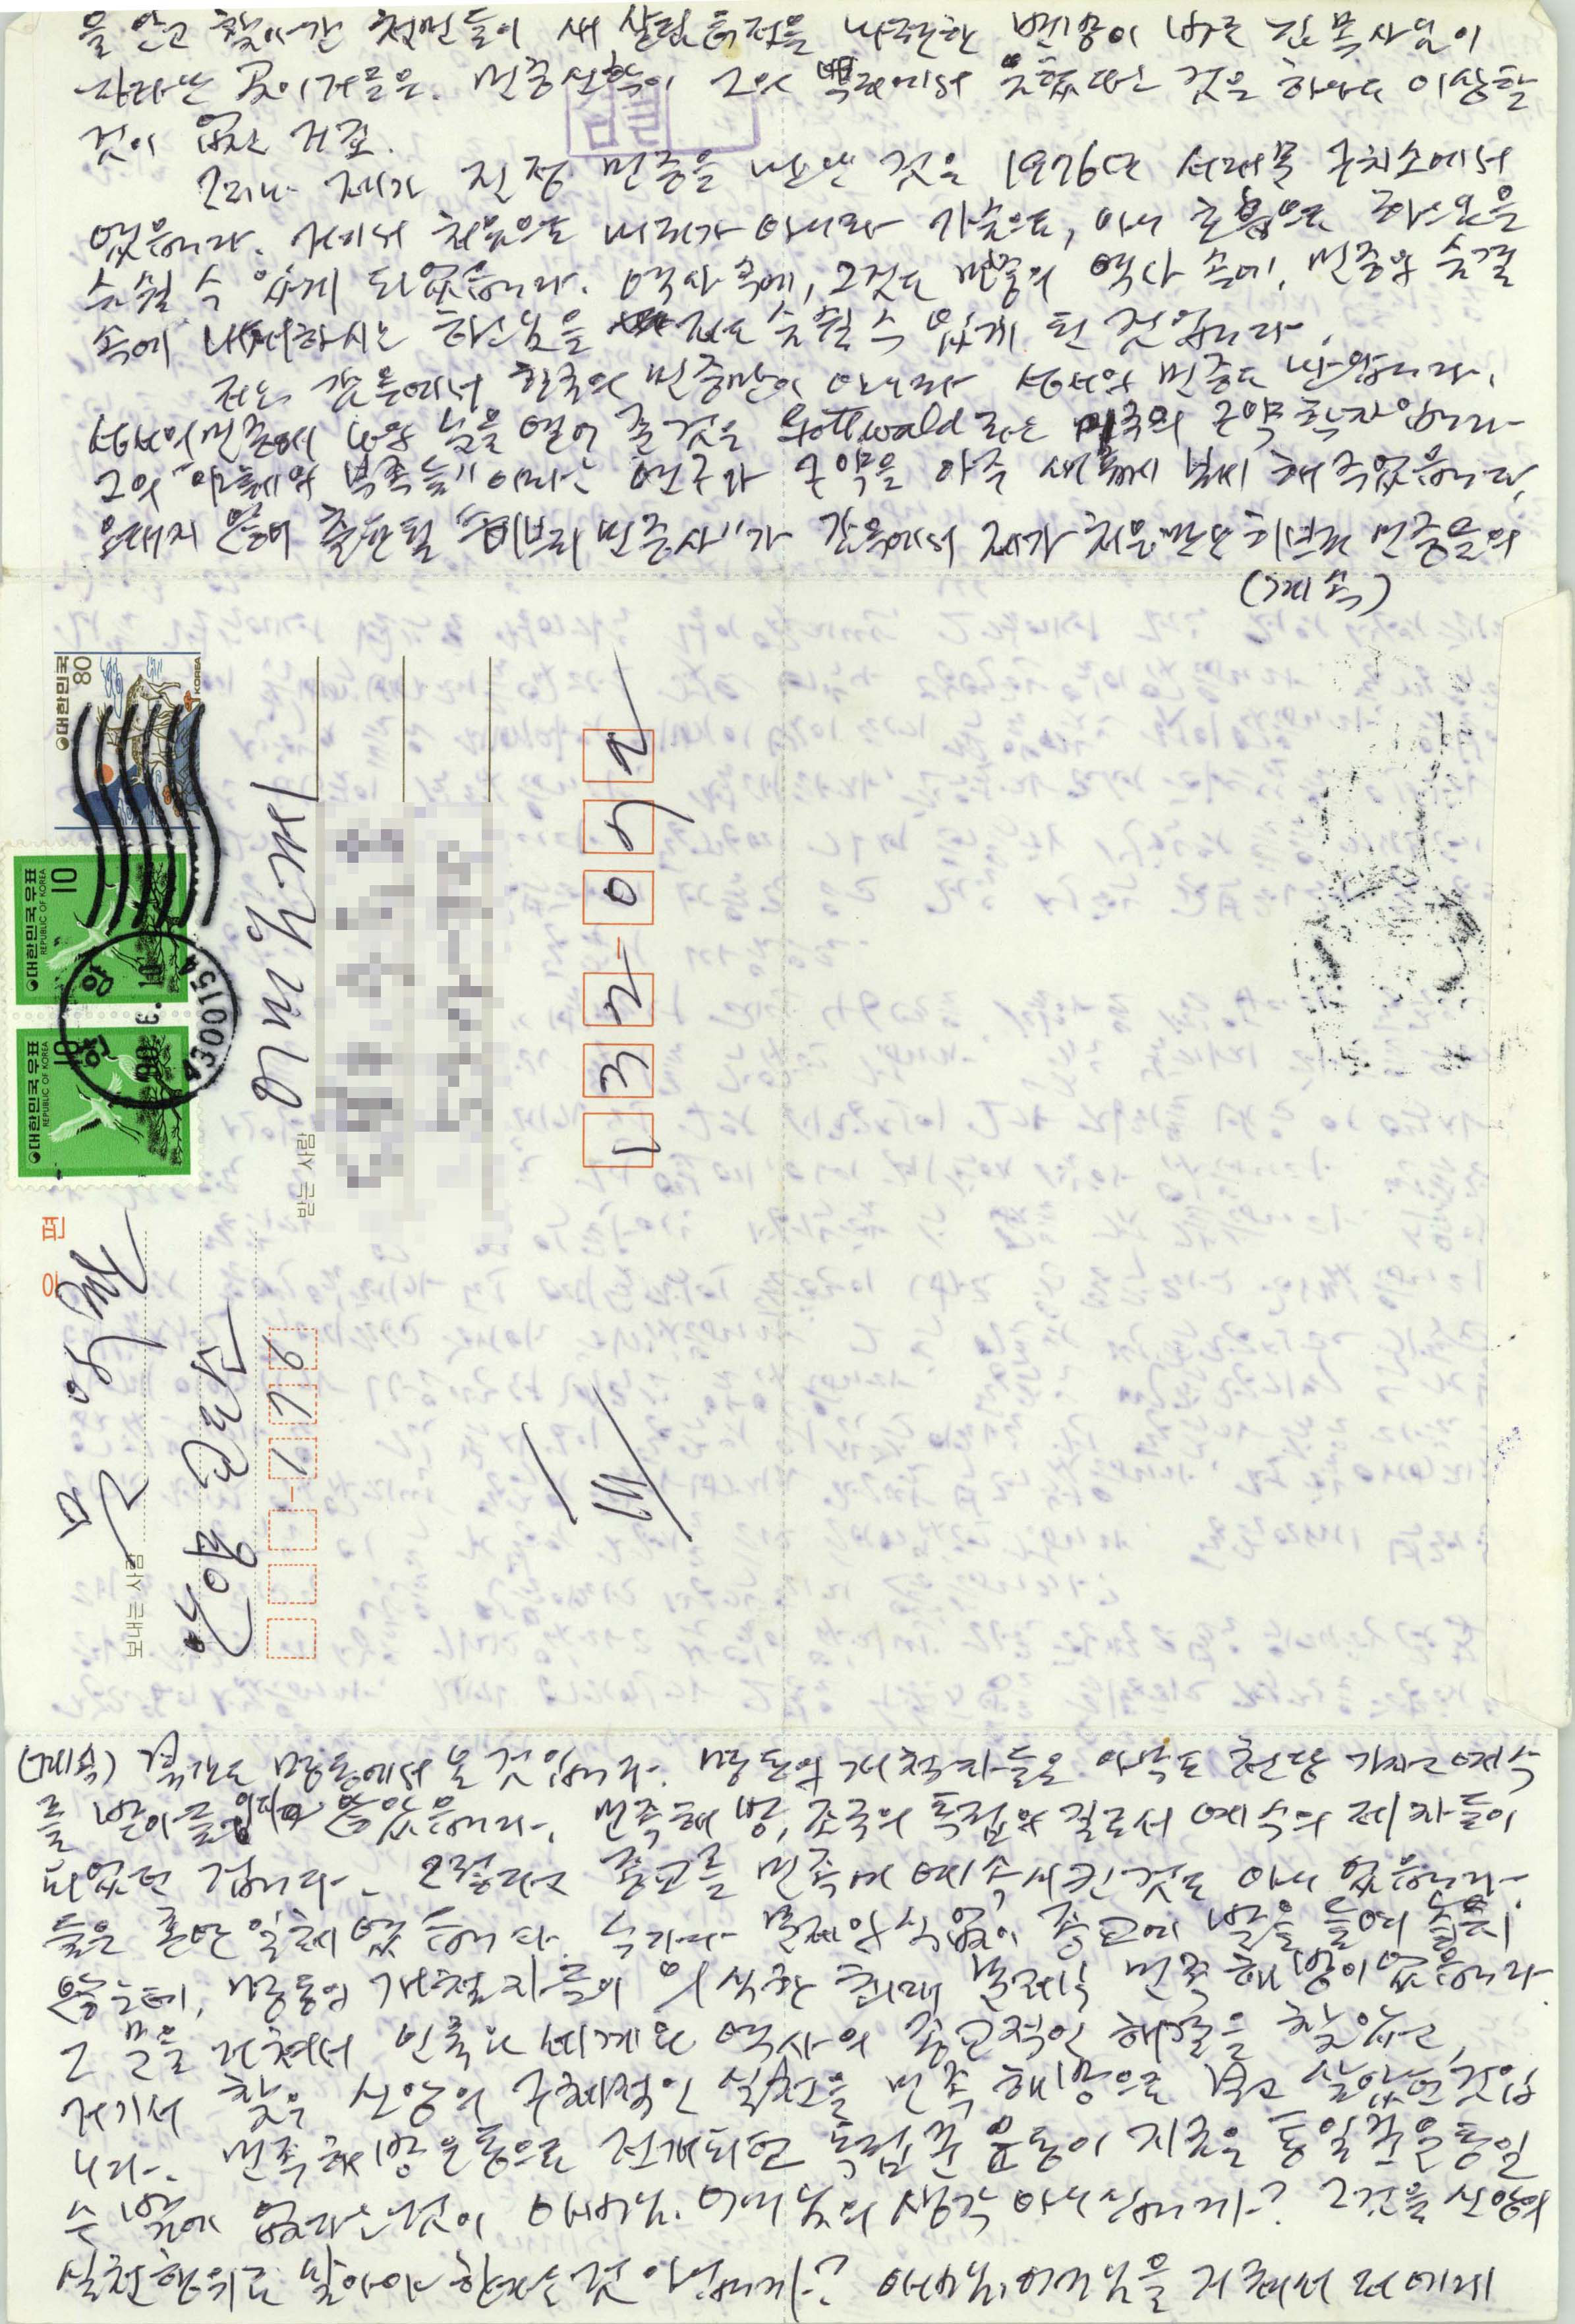 을 안고 찾아간 선민들이 새 살림 터전을 마련한 명동이 바로 김 목사님이
자라난 곳이거든요. 민중신학이 그의 백조에서 못했다는 것은 하나도 이상할
것이 없는 거죠.
그러나 제가 진정 민중을 만난 것은 1976년 서대문 구치소에서
였습니다. 거기서 처음으로 머리가 아니라 가슴으로, 아니 온몸으로 하느님을
숨쉴 수 있게 되었습니다. 역사 속에, 그것도 민중의 역사 속에, 민중의 숨결
속에 내재하시는 하느님을 저도 숨쉴 수 있게 된 것입니다.
저는 감옥에서 한국의 민중만이 아니라 성서의 민중도 만납니다.
성서의 민중에 대한 눈을 열어 준 것은 Gottwald라는 미국의 구약학자입니다
그의 "야훼의 부족들"이라는 연구가 구약을 아주 새롭게 보게 해 주었습니다.
오래지 않아 출판될 "히브리 민중사"가 감옥에서 제가 처음 만난 히브리 민중들의
(계속)
대한민국 80 KOREA
대한민국우표 10 REPUBLIC OF KOREA
대한민국우표 10 REPUBLIC OF KOREA
안양
90. 6.
4300154
받는 사람
132-042
봉함
보내는 사람
문익환
안양 교도소
171-
(계속) 명동에서 온 것입니다. 명동의 개척자들은 아무도 천당 가자고 예수
를 받아들이지 않았습니다. 민족해방, 조국의 독립의 길로서 예수의 제자들이
되었던 겁니다. 그렇다고 종교를 민족에 예속시킨 것도 아니었습니다.
물론 혼란 일체 없습니다. 누구나 문제의식 없이 종교에 발을 들여놓지
않는데, 명동의 개척자들이 의식한 최대 문제는 민족해방이었습니다.
그 문을 거쳐서 인류와 세계와 역사의 종교적인 해결을 찾았고,
거기서 찾은 신앙의 구체적인 실천을 민족 해방으로 보고 살았던 것입
니다. 민족해방운동으로 전개되던 독립운동이 지금은 통일운동일
수 밖에 없다는 것이 아버님, 어머님의 생각 아니십니까? 그것을 신앙의
실천행위로 알아야 한다는 것 아닙니까? 아버님, 어머님을 거쳐서 저에게